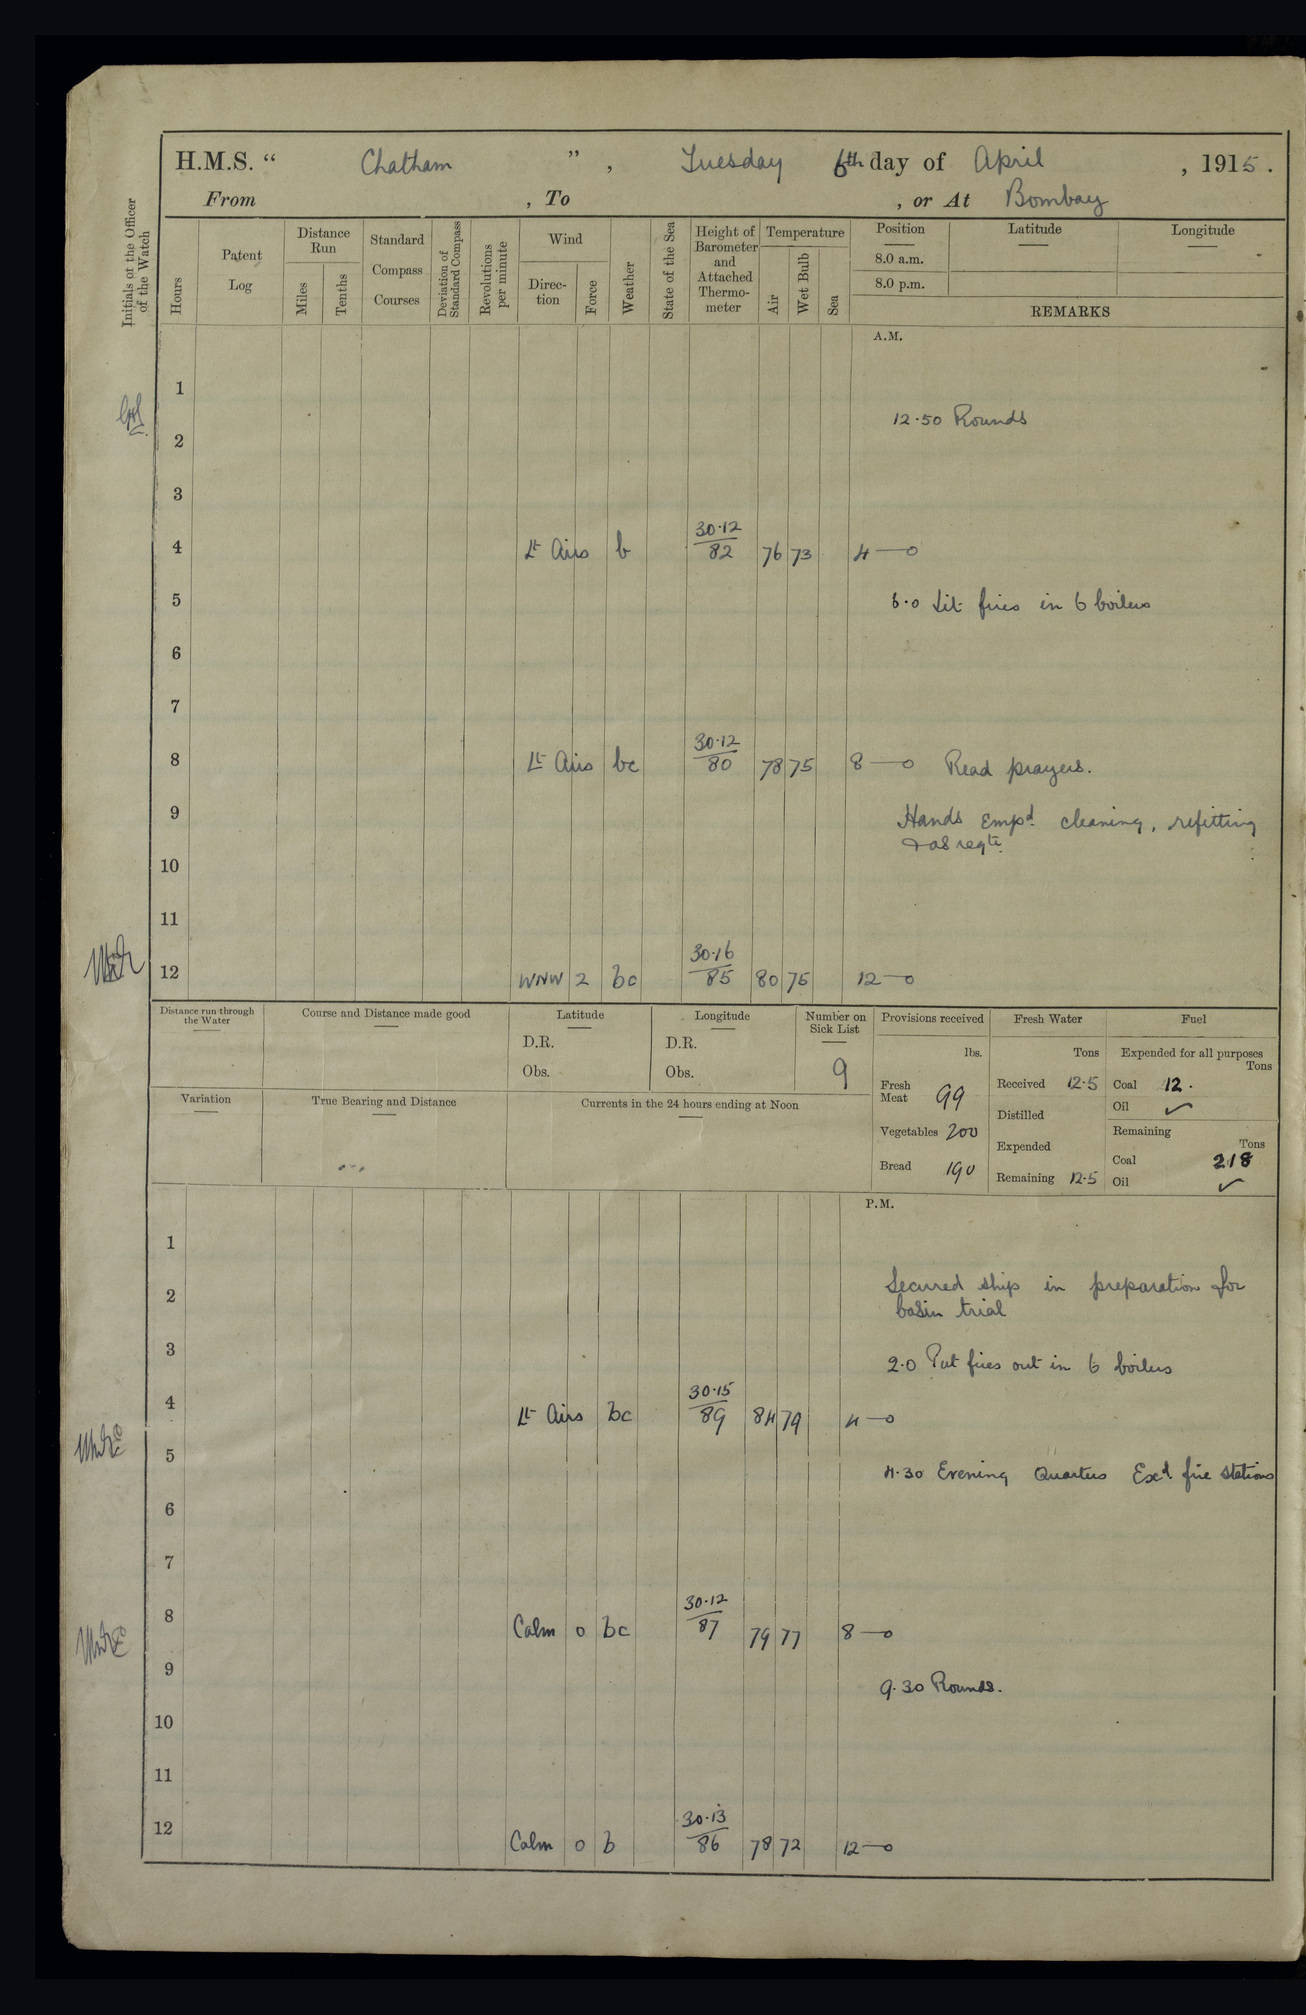 H.M.S. “ Chatham ” , Tuesday 6th day of April , 1915 .
From , To , or At Bombay
Initials of the Officer of the Watch
Hours
Patent Log
Distance Run
Miles
Tenths
Standard Compass Courses
Deviation of Standard Compass
Revolutions per minute
Wind
Direc-tion
Force
Weather
State of the Sea
Height of Barometer and Attached Thermo-meter
Temperature
Air
Wet Bulb
Sea
Position
8.0 a.m.
8.0 p.m.
Latitude
Longitude
REMARKS
A.M.
1
12.50 Rounds
2
3
4 Lt Airs b 30.12 / 82 76 73 4—0
5 6.0 Lit fires in 6 boilers
6
7
8 Lt Airs bc 30.12 / 80 78 75 8—0 Read prayers.
9 Hands Empd cleaning, refitting
& as reqte.
10
11
12 WNW 2 bc 30.16 / 85 80 75 12—0
Distance run through the Water
Course and Distance made good
Latitude
D.R.
Obs.
Longitude
D.R.
Obs.
Number on Sick List
9
Provisions received
lbs.
Fresh Meat 99
Vegetables 200
Bread 190
Fresh Water
Tons
Received 12.5
Distilled
Expended
Remaining 12.5
Fuel
Expended for all purposes
Tons
Coal 12.
Oil ✓
Remaining
Tons
Coal 218
Oil ✓
Variation
True Bearing and Distance
Currents in the 24 hours ending at Noon
P.M.
1
2 Secured ship in preparation for
basin trial
3 2.0 Put fires out in 6 boilers
4 Lt Airs bc 30.15 / 89 84 79 4—0
5 4.30 Evening Quarters Exd. fire stations
6
7
8 Calm 0 bc 30.12 / 87 79 77 8—0
9 9.30 Rounds.
10
11
12 Calm 0 b 30.13 / 86 78 72 12—0